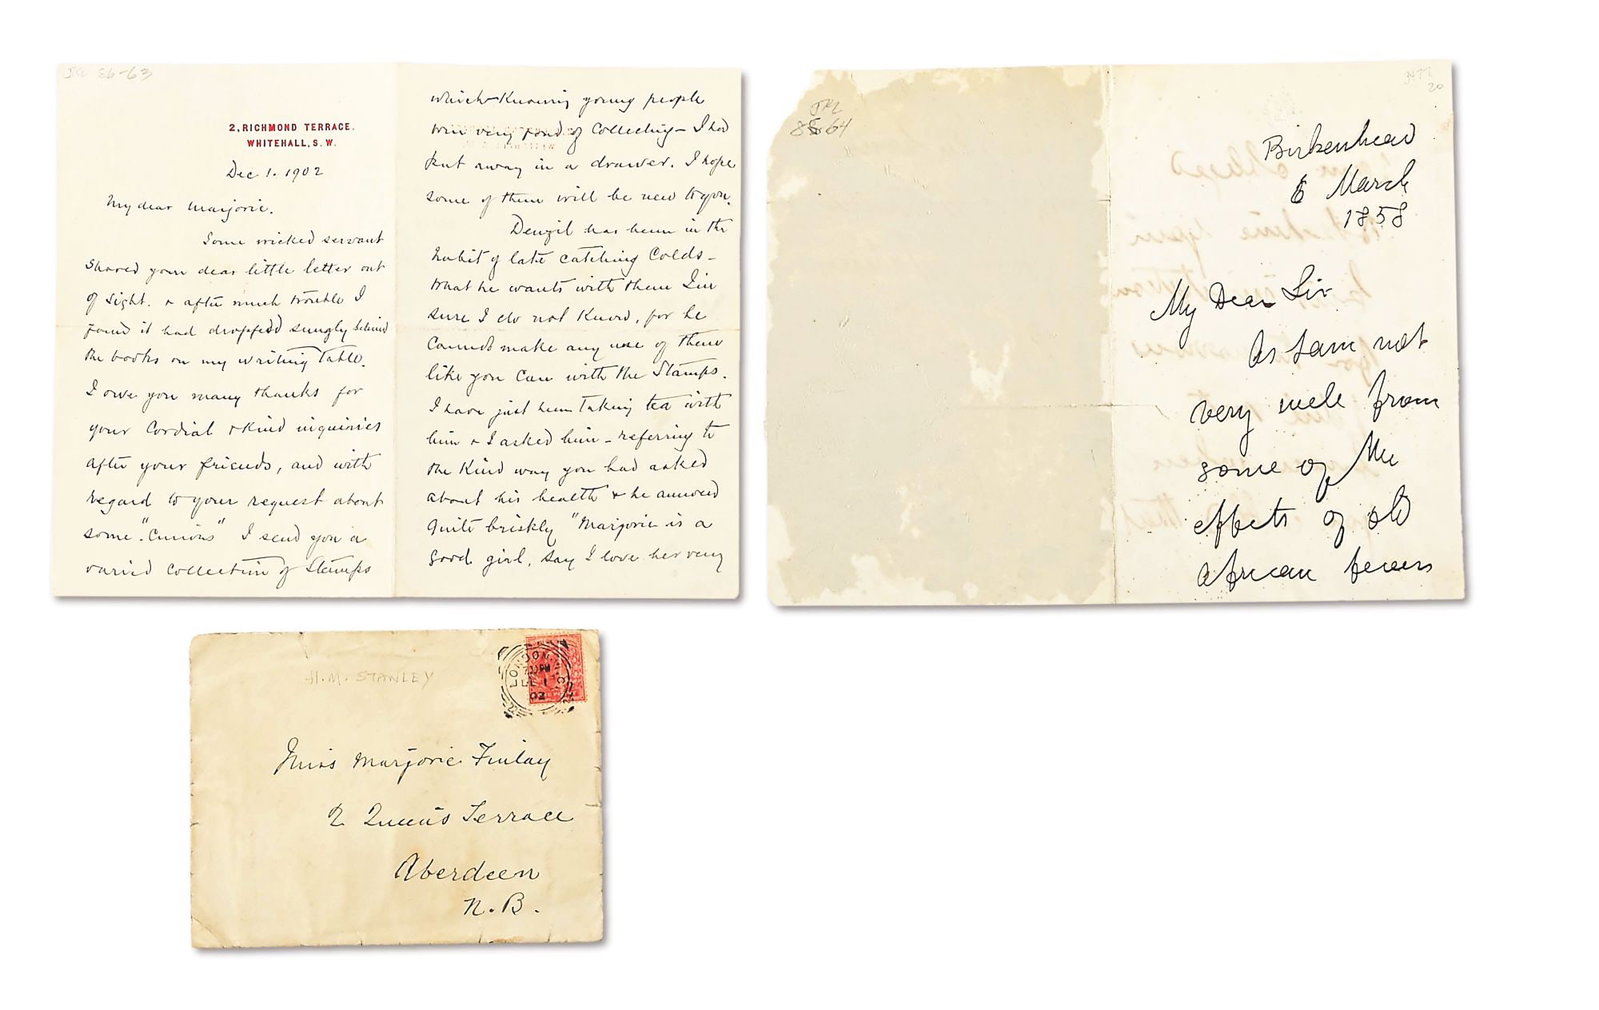 2, RICHMOND TERRACE.
WHITEHALL, S. W.
Dec 1. 1902
My dear Marjorie.
Some wicked servant
shoved your dear little letter out
of sight. & after much trouble I
found it had dropped snugly behind
the books on my writing table.
I owe you many thanks for
your cordial & kind inquiries
after your friends, and with
regard to your request about
some "Curios" I send you a
varied collection of Stamps
which knowing young people
were very fond of Collecting - I had
put away in a drawer. I hope
some of them will be new to you.
Denzil has been in the
habit of late catching Colds -
what he wants with them I'm
sure I do not know, for he
cannot make any use of them
like you can with the Stamps.
I have just been taking tea with
him & I asked him - referring to
the kind way you had asked
about his health & he answered
quite briskly "Marjorie is a
good girl, say I love her very
Birkenhead
6 March
1858
My Dear Sir
As I am not
very well from
some of the
effects of old
African fevers
H.M. STANLEY
LONDON
DE 1
02
Miss Marjorie Finlay
2 Queens Terrace
Aberdeen
N. B.